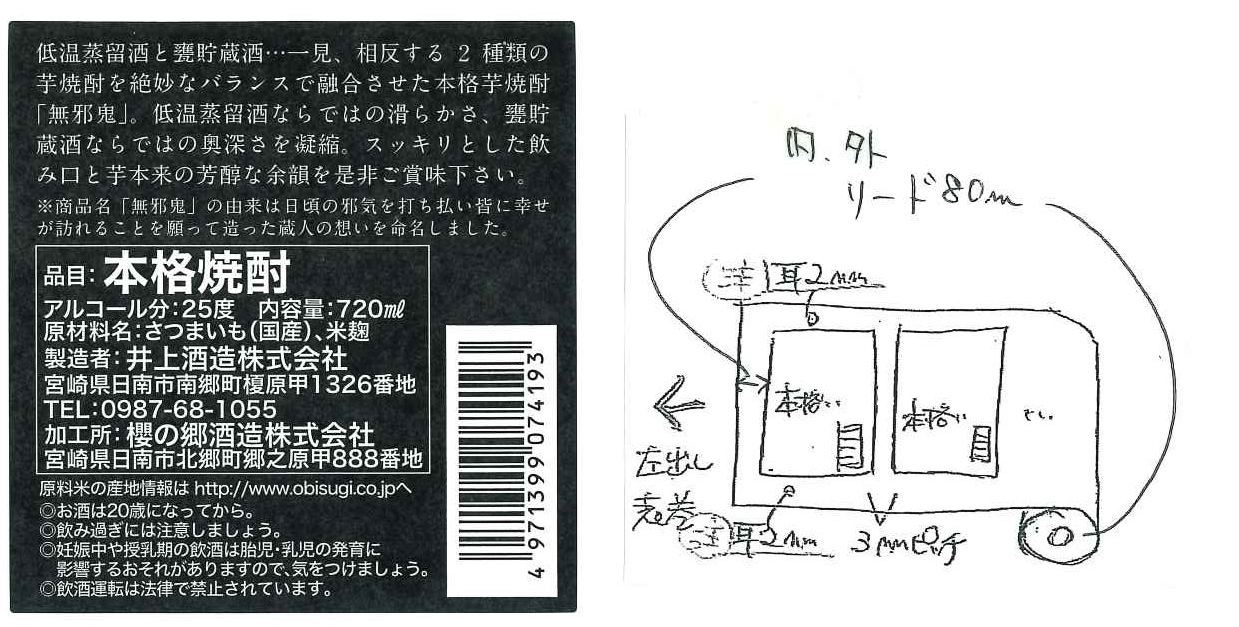 低温蒸留酒と甕貯蔵酒…一見、相反する２種類の
芋焼酎を絶妙なバランスで融合させた本格芋焼酎
「無邪鬼」。低温蒸留酒ならではの滑らかさ、甕貯
蔵酒ならではの奥深さを凝縮。スッキリとした飲
み口と芋本来の芳醇な余韻を是非ご賞味下さい。
※商品名「無邪鬼」の由来は日頃の邪気を打ち払い皆に幸せ
が訪れることを願って造った蔵人の想いを命名しました。
品目：本格焼酎
アルコール分：25度　内容量：720㎖
原材料名：さつまいも（国産）、米麹
製造者：井上酒造株式会社
宮崎県日南市南郷町榎原甲1326番地
TEL：0987-68-1055
加工所：櫻の郷酒造株式会社
宮崎県日南市北郷町郷之原甲888番地
原料米の産地情報は http://www.obisugi.co.jpへ
◎お酒は20歳になってから。
◎飲み過ぎには注意しましょう。
◎妊娠中や授乳期の飲酒は胎児・乳児の発育に
影響するおそれがありますので、気をつけましょう。
◎飲酒運転は法律で禁止されています。
4 971399 074193
内、外
リード80m
注 耳2mm
本格〃
本格〃
左出し
表巻
注 耳2mm
3mmピッチ